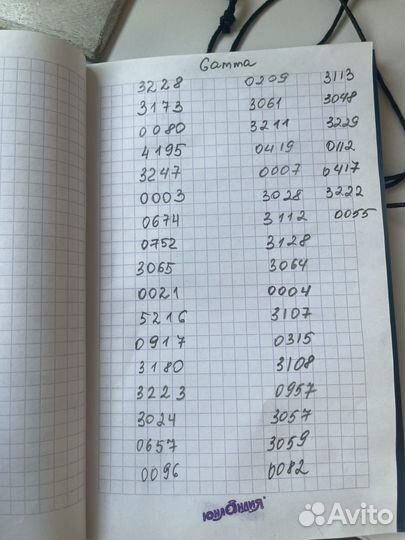 Gamma
3228 0209 3113
3173 3061 3048
0080 3211 3229
4195 0419 0112
3247 0007 0417
0003 3028 3222
0674 3112 0055
0752 3128
3065 3064
0021 0004
5216 3107
0917 0315
3180 3108
3223 0957
3024 3057
0657 3059
0096 0082
ЮНЛАНДИЯ
Avito